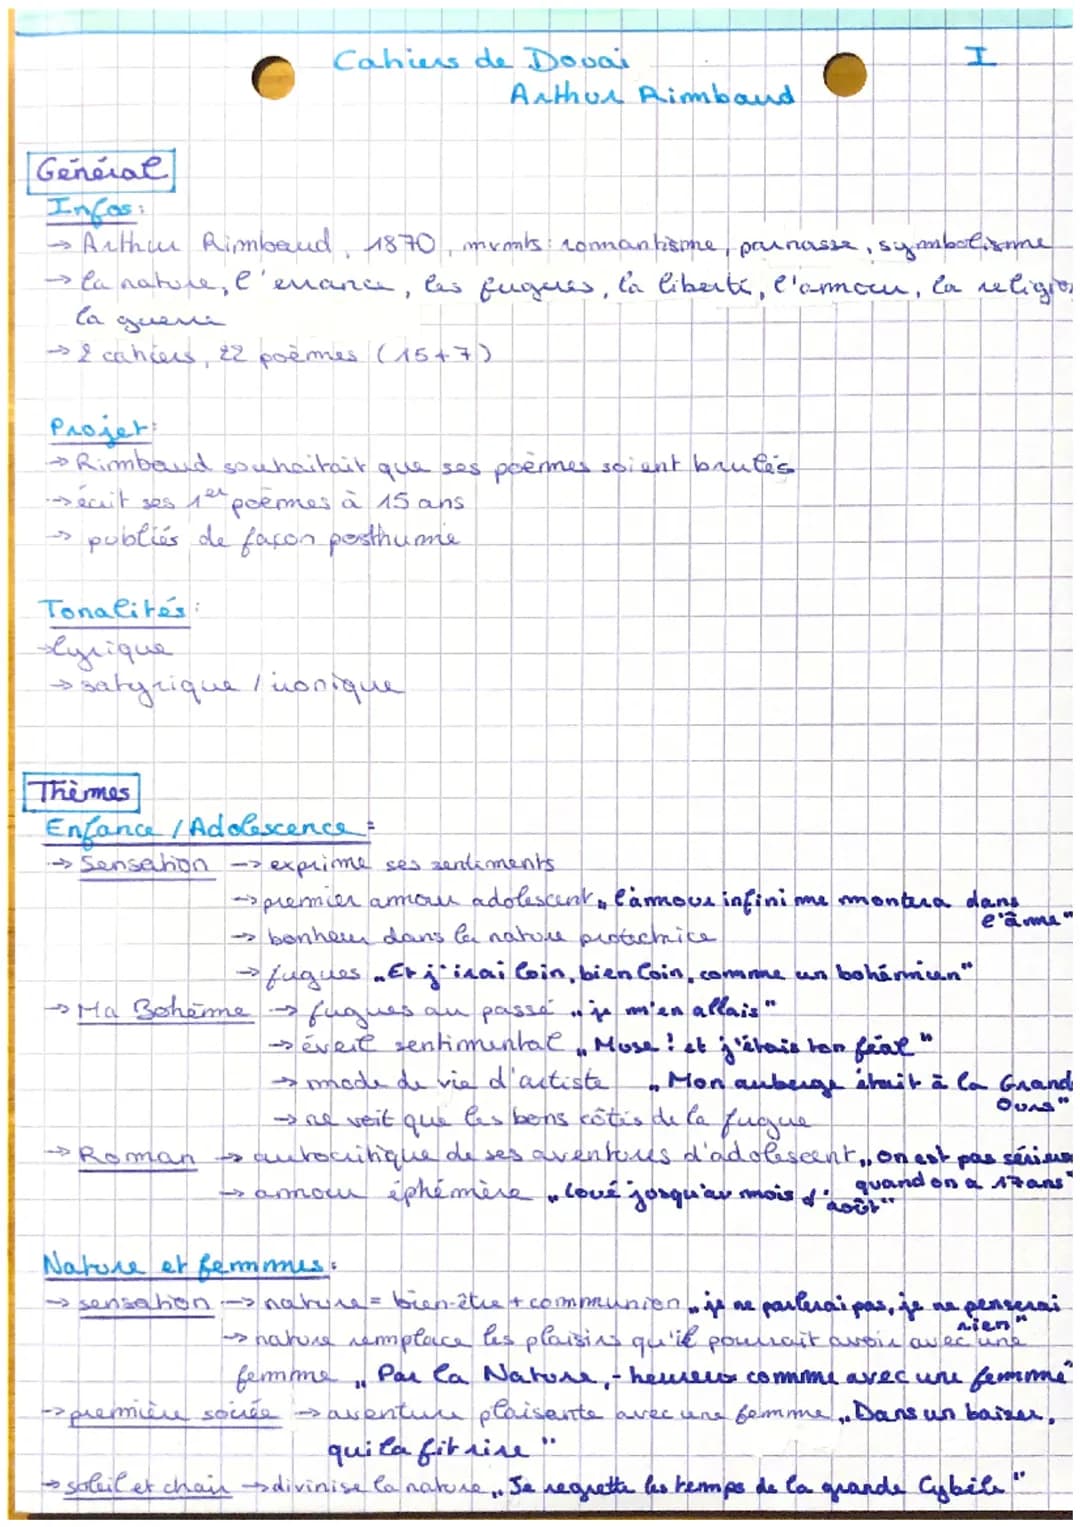 Cahiers de Douai
I
Arthur Rimbaud
Général
Infos:
→ Arthur Rimbaud, 1870, mvmts: romantisme, parnasse, symbolisme
→ la nature, l'errance, les fugues, la liberté, l'amour, la religion
la guerre
→ 2 cahiers, 22 poèmes (15+7)
Projet:
→ Rimbaud souhaitait que ses poèmes soient brulés
→ écrit ses 1er poèmes à 15 ans
→ publiés de façon posthume
Tonalités:
→ lyrique
→ satyrique / ironique
Thèmes
Enfance / Adolescence:
→ Sensation → exprime ses sentiments
→ premier amour adolescent „l'amour infini me montera dans
l'âme"
→ bonheur dans la nature protectrice
→ fugues „Et j'irai loin, bien loin, comme un bohémien"
→ Ma Bohème → fugues au passé „je m'en allais"
→ éveil sentimental „Muse! et j'étais ton féal"
→ mode de vie d'artiste „Mon auberge était à la Grand
Ours"
→ ne voit que les bons côtés de la fugue
→ Roman → autocritique de ses aventures d'adolescent „on est pas sérieux
quand on a 17 ans"
→ amour éphémère „loué jusqu'au mois d'août"
Nature et femmes:
→ sensation → nature = bien-être + communion „je ne parlerai pas, je ne penserai
rien"
→ nature remplace les plaisirs qu'il pourrait avoir avec une
femme „Par la Nature, - heureux comme avec une femme"
→ première soirée → aventure plaisante avec une femme „Dans un baiser,
qui la fit rire"
→ soleil et chair → divinise la nature „Je regrette les temps de la grande Cybèle"